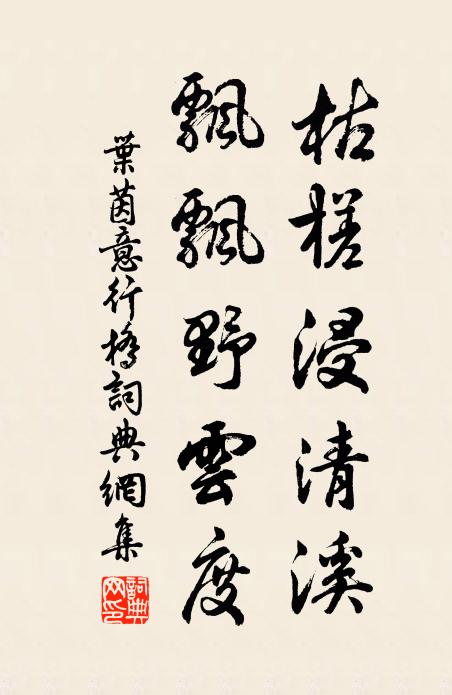 枯槎浸清溪
飄飄野雲度
葉茵意行橋詞典網集
詞典网印